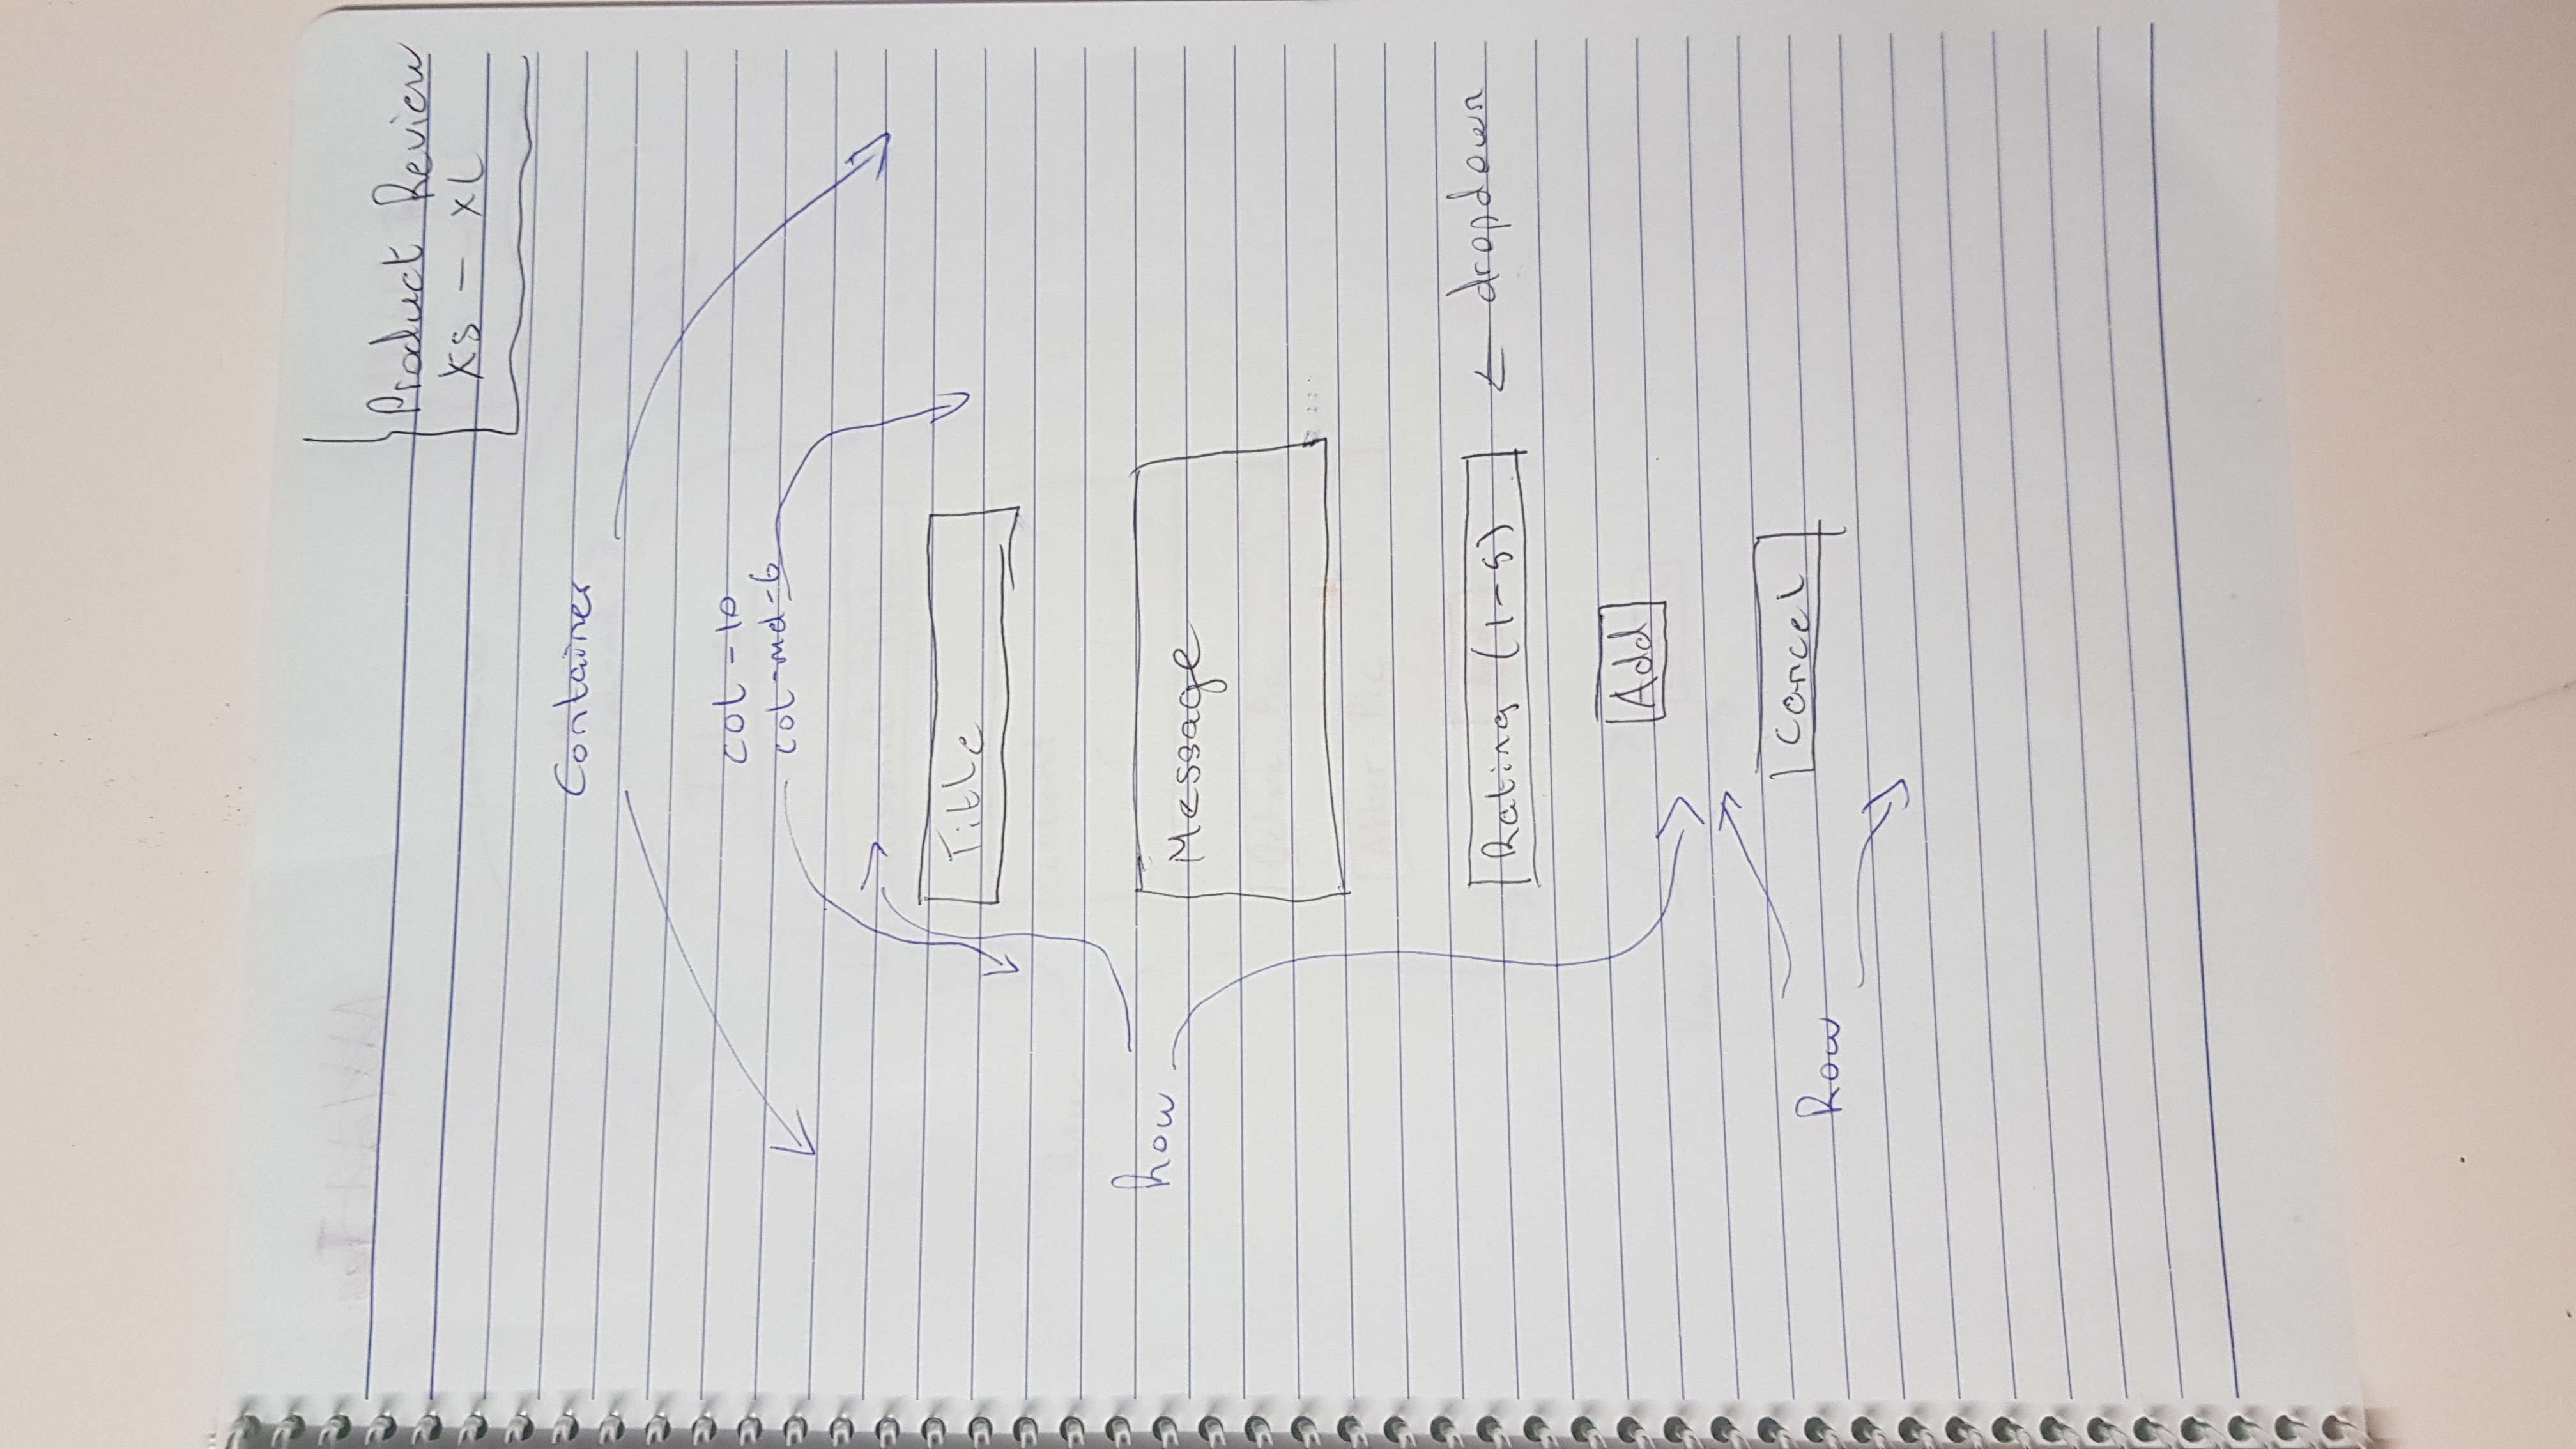 Product Review
XS - XL
Container
col-10
col-md-6
Title
Row
Message
Rating (1-5)
← dropdown
Add
Cancel
Row